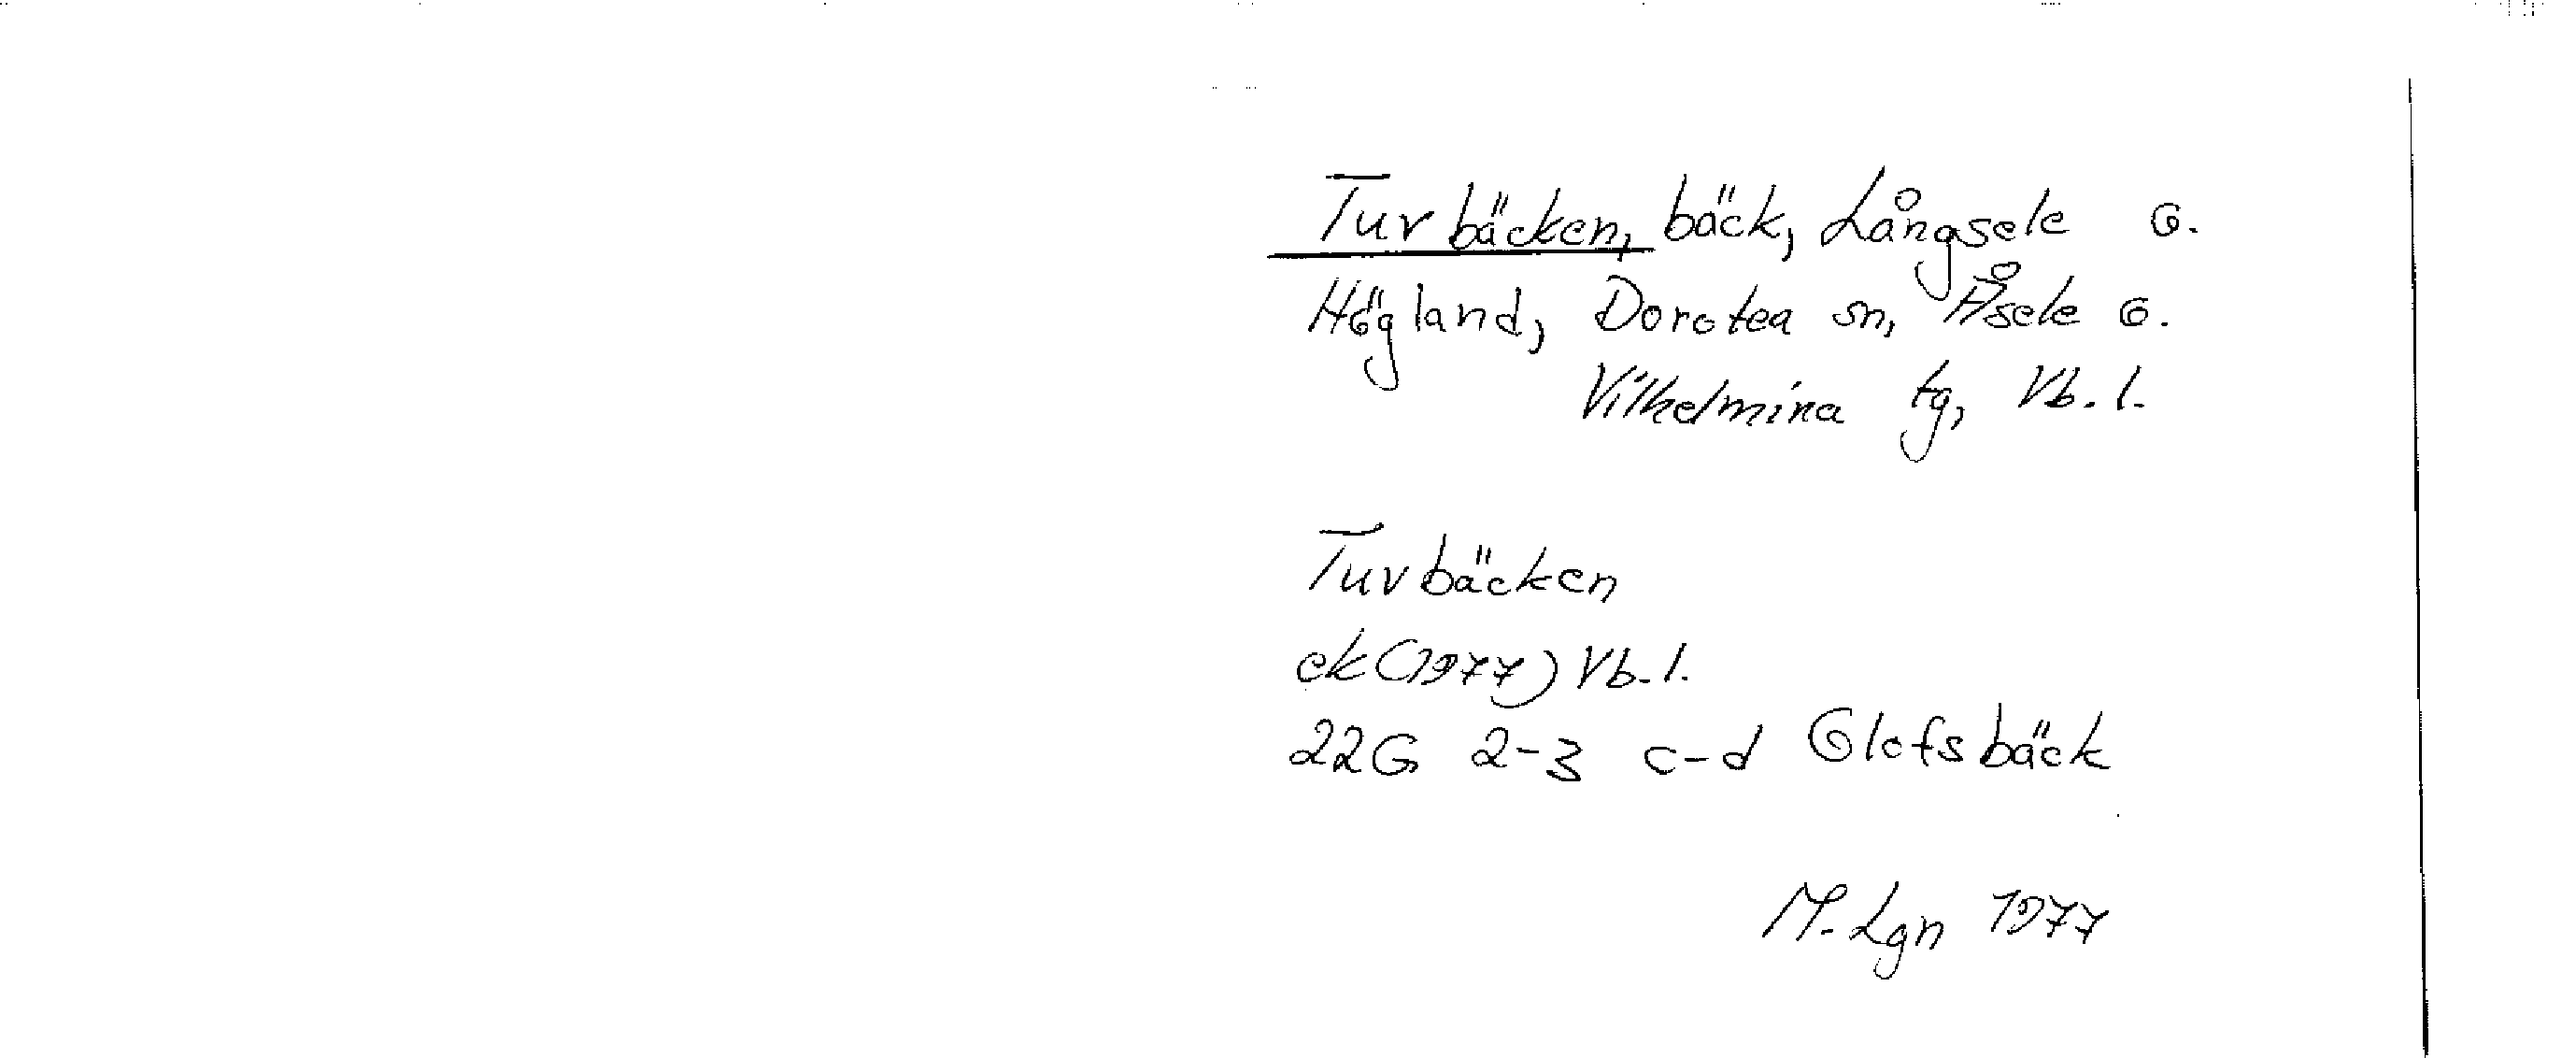 Turbäcken, bäck, Långsele o.
Högland, Dorotea sn, Åsele o.
Vilhelmina tg, Vb. l.
Turbäcken
ek (1977) Vb. l.
22G 2-3 c-d Olofsbäck
M. Lgn 1977